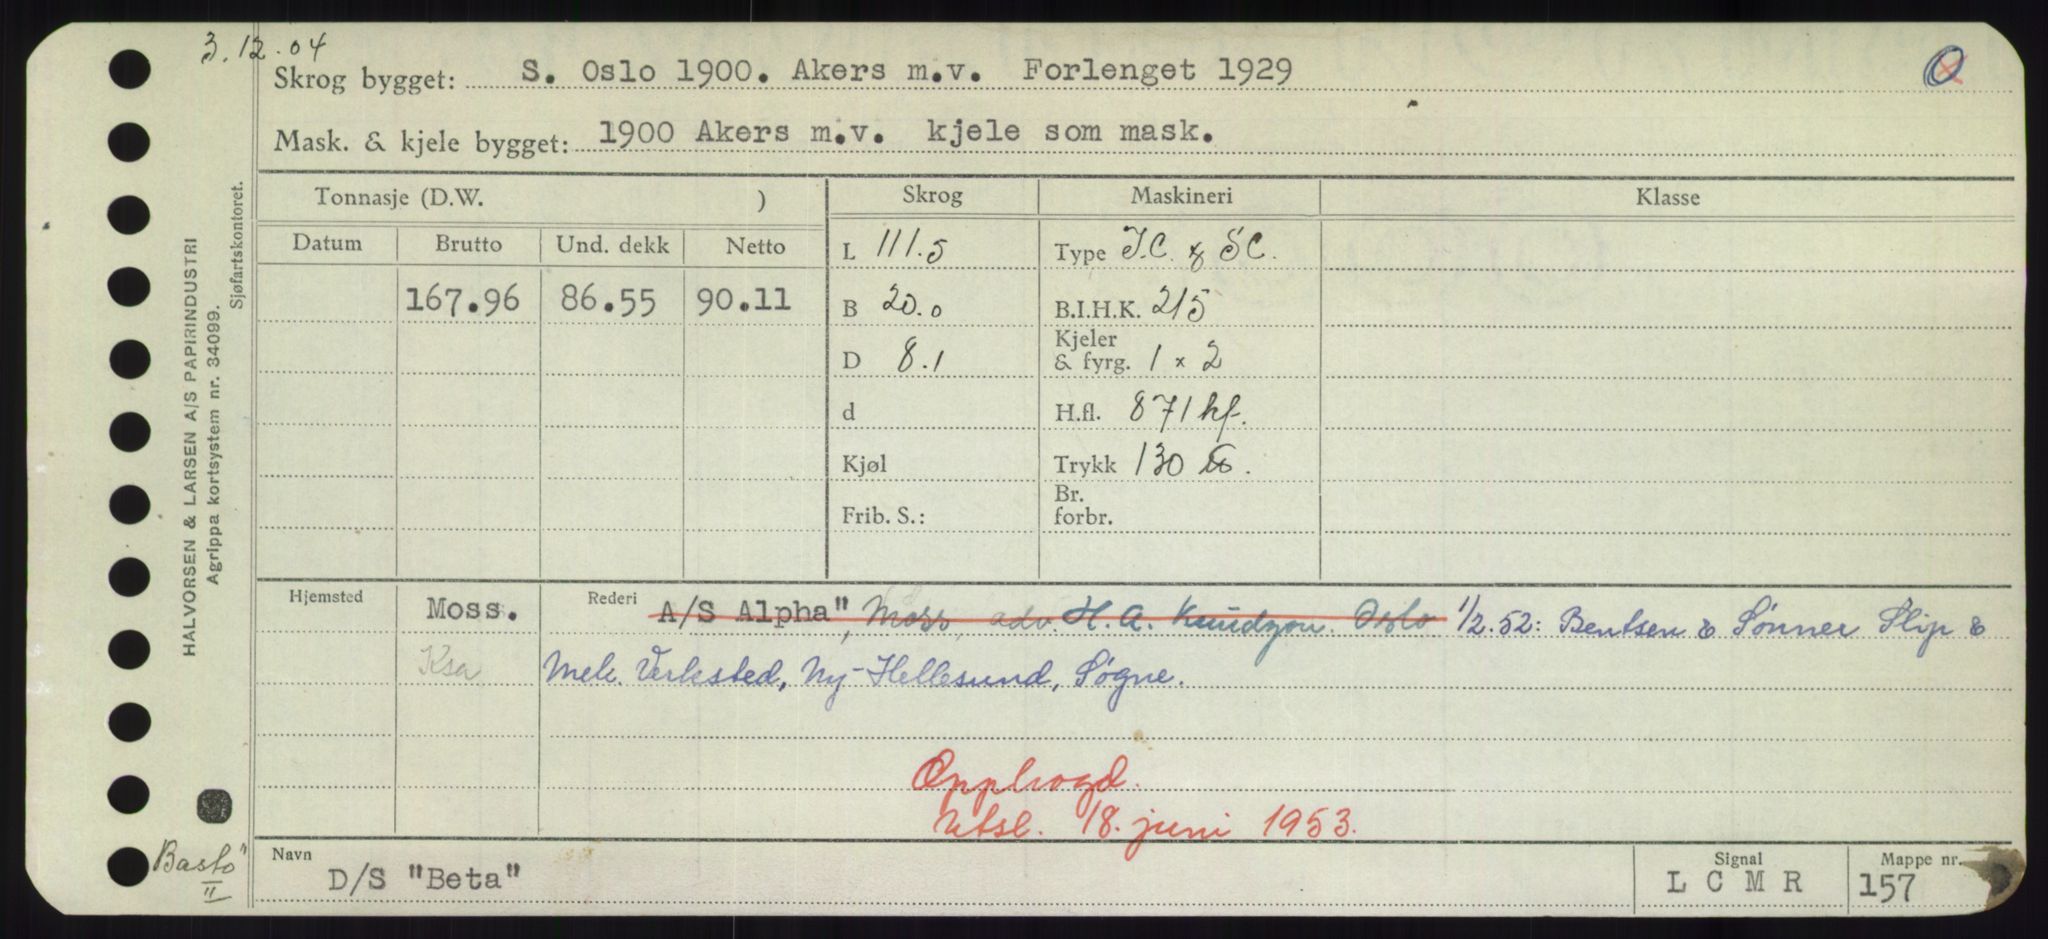 3.12.04
Skrog bygget: S. Oslo 1900. Akers m.v. Forlenget 1929
Mask. & kjele bygget: 1900 Akers m.v. kjele som mask.
Tonnasje (D.W. ) Skrog Maskineri Klasse
Datum Brutto Und. dekk Netto L 111.5 Type I.C. & SC.
167.96 86.55 90.11 B 20.0 B.I.H.K. 215
D 8.1 Kjeler & fyrg. 1 x 2
d H.fl. 871 kf.
Kjøl Trykk 130 lb.
Frib. S.: Br. forbr.
Hjemsted Moss. Rederi A/S Alpha", Moss, adv. H. A. Knudzon. Oslo 1/2.52: Bentsen & Sønner Slip &
Ksa Mek. Verksted, Ny-Hellesund, Søgne.
Opphogd.
Utsl. 18. juni 1953.
Navn D/S "Beta" Signal L C M R Mappe nr. 157
Bastø" II
HALVORSEN & LARSEN A/S PAPIRINDUSTRI
Agrippa kortsystem nr. 34099.
Sjøfartskontoret.